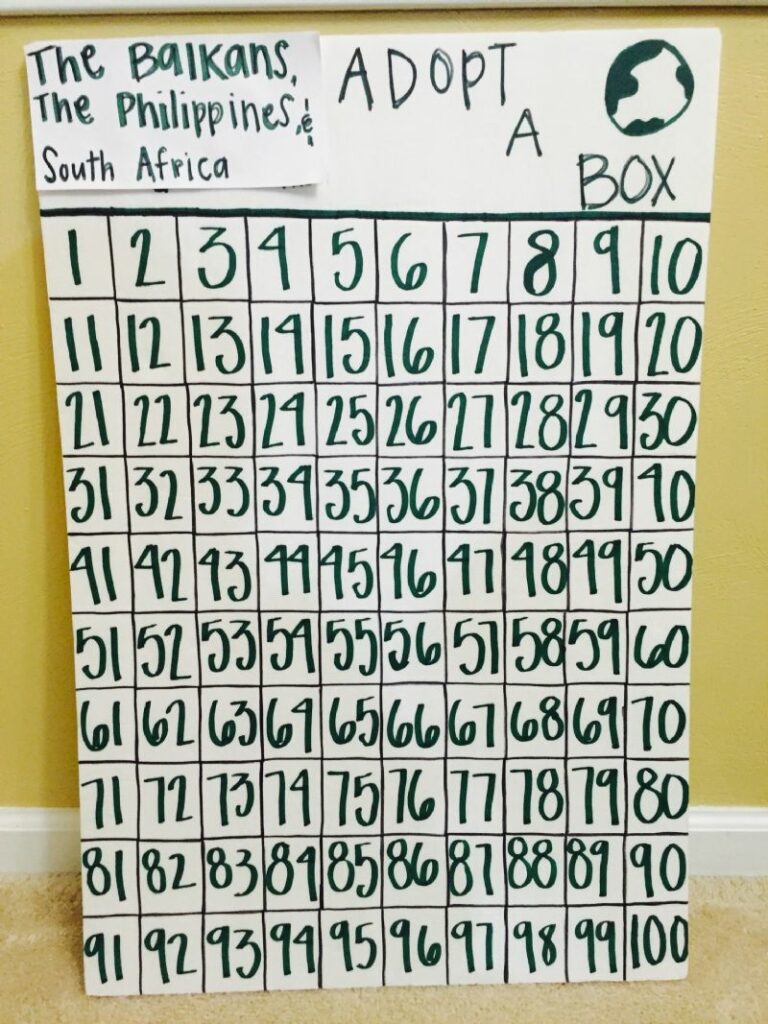 The Balkans,
The Philippines, &
South Africa
ADOPT
A
BOX
1 2 3 4 5 6 7 8 9 10
11 12 13 14 15 16 17 18 19 20
21 22 23 24 25 26 27 28 29 30
31 32 33 34 35 36 37 38 39 40
41 42 43 44 45 46 47 48 49 50
51 52 53 54 55 56 57 58 59 60
61 62 63 64 65 66 67 68 69 70
71 72 73 74 75 76 77 78 79 80
81 82 83 84 85 86 87 88 89 90
91 92 93 94 95 96 97 98 99 100